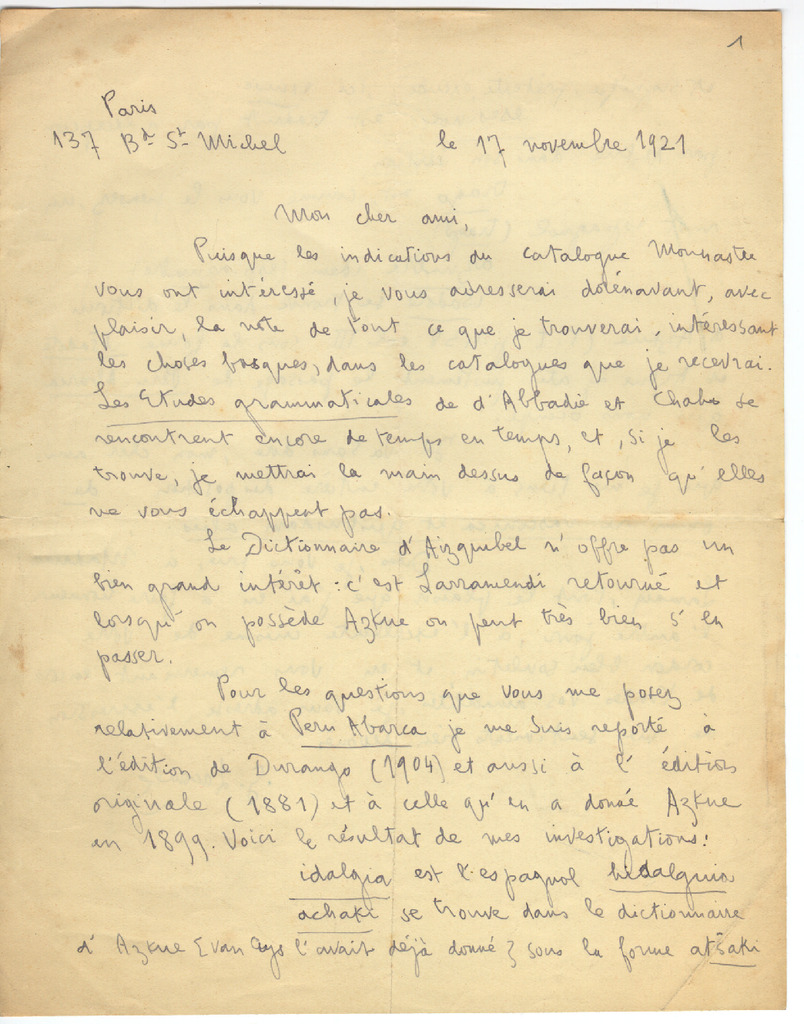 1
Paris
137 Bd St Michel le 17 novembre 1921
Mon cher ami,
Puisque les indications du catalogue Monnastre
vous ont intéressé, je vous adresserai dorénavant, avec
plaisir, la note de tout ce que je trouverai, intéressant
les choses basques, dans les catalogues que je recevrai.
Les Etudes grammaticales de d'Abbadie et Chaho se
rencontrent encore de temps en temps, et, si je les
trouve, je mettrai la main dessus de façon qu'elles
ne vous échappent pas.
Le Dictionnaire d'Aizquibel n'offre pas un
bien grand intérêt : c'est Larramendi retourné et
lorsqu'on possède Azkue on peut très bien s'en
passer.
Pour les questions que vous me posez
relativement à Peru Abarca je me suis reporté à
l'édition de Durango (1904) et aussi à l'édition
originale (1881) et à celle qu'en a donné Azkue
en 1899. Voici le résultat de mes investigations :
idalgia est l'espagnol hidalguia
achaki se trouve dans le dictionnaire
d'Azkue [van Eys l'avait déjà donné] sous la forme atšaki